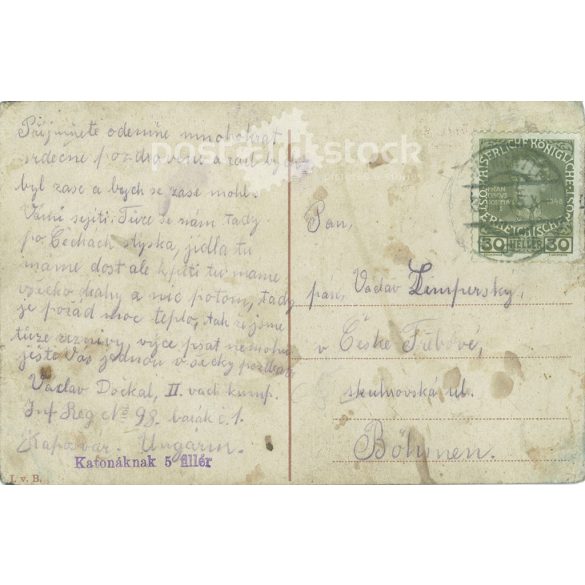 Přijmůťe odemne mnohokrat
srdečné pozdravení a rád bych
byl zase a bych se zase mohl
Vámi sejiti. Tůze se nám tady
po Čechach styska, jidla tu
mame dost ale k piti tu mame
všecko drahy a nic potom, tady
je porád moc teplo, tak
psat
ještě Vas jednou všecky pozdrav
Vaclav Dockal, II. vach kump.
Inf Reg No 98. barák č. 1.
Kaposvár. Ungarn.
Katonáknak 5 fillér
I. v. B.
Pan,
pán, Vaclav Limpersky,
v České Třebové,
ul.
Böhmen.
KAISERLICHE KÖNIGLICHE
ÖSTERREICHISCHE
30 HELLER 30
postcardstock